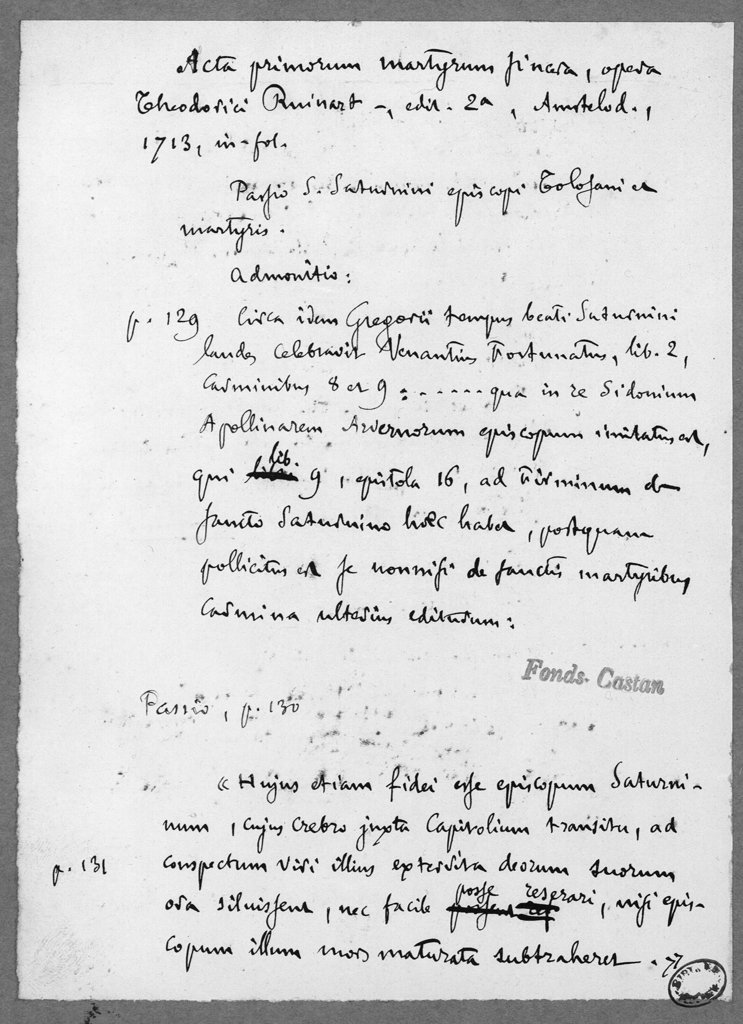 Acta primorum martyrum sincera, opera
Theodorici Ruinart –, edit. 2a, Amstelod.,
1713, in-fol.
Passio S. Saturnini episcopi Tolosani et
martyris.
Admonitio:
p. 129 Circa idem Gregorii tempus beati Saturnini
laudes celebravit Venantius Fortunatus, lib. 2,
Carminibus 8 et 9 : ...... qua in re Sidonium
Apollinarem Arvernorum episcopum imitatus est,
qui lib. 9, epistola 16, ad Firminum de
sancto Saturnino hæc habet, postquam
pollicitus est se nonnisi de sanctis martyribus
Carmina ulterius editurum:
Fonds Castan
Passio, p. 130
« Hujus etiam fidei esse episcopum Saturni-
num, cujus crebro juxta Capitolium transitu, ad
p. 131 conspectum viri illius exterrita deorum suorum
ora siluissent, nec facile posse reserari, nisi epis-
copum illum mors maturata subtraheret. »